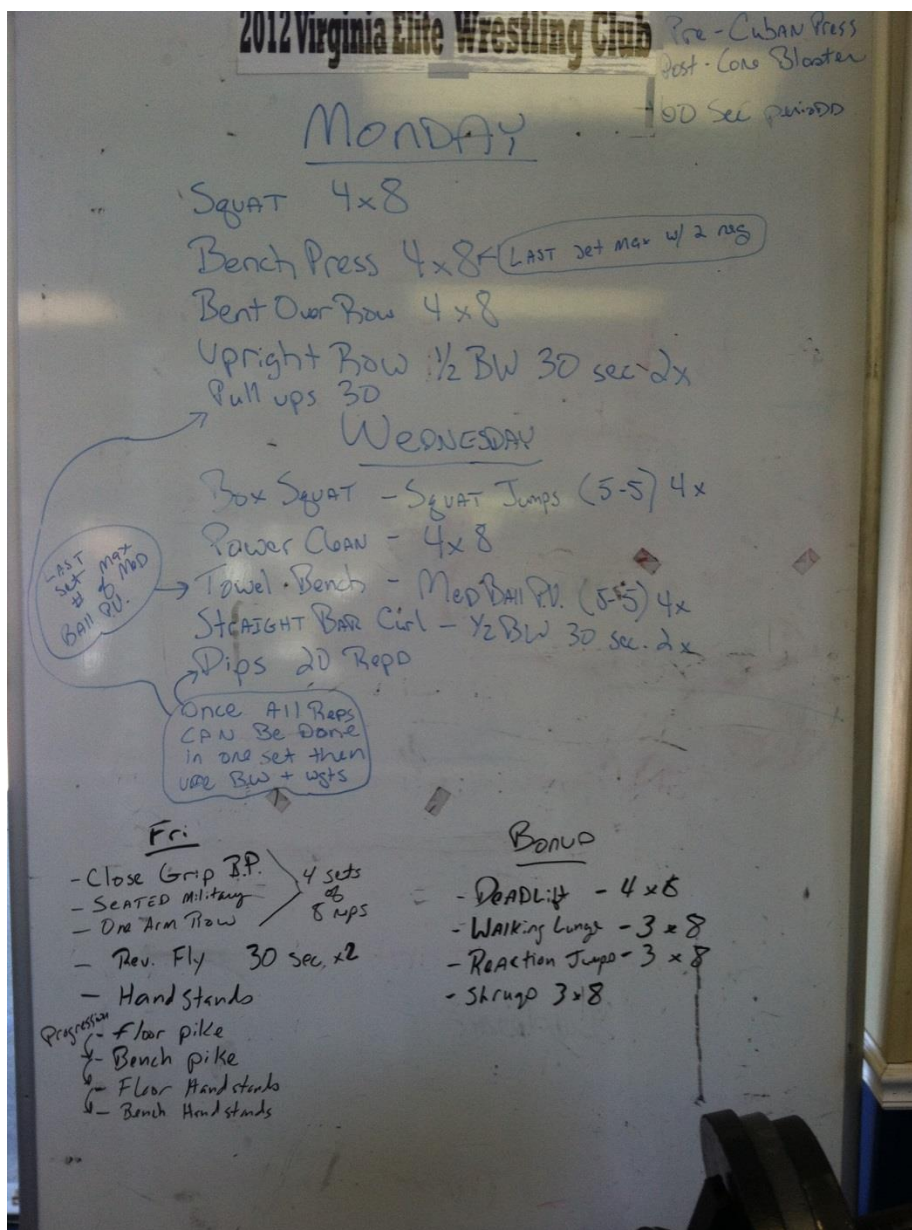 2012 Virginia Elite Wrestling Club
Pre - Cuban Press
Post - Core Blaster
Sec
Monday
Squat 4x8
Bench Press 4x8 ← Last set max w/ 2 neg
Bent Over Row 4x8
Upright Row 1/2 BW 30 sec 2x
Pull ups 30
Wednesday
Box Squat - Squat Jumps (5-5) 4x
Power Clean - 4x8
Last
set max
# of Med
Ball P.U.
Towel Bench - Med Ball P.U. (5-5) 4x
Straight Bar Curl - 1/2 BW 30 sec. 2x
Dips 20 Reps
Once All Reps
CAN Be Done
in one set then
use BW + wgts
Fri
- Close Grip B.P.
- Seated Military
- One Arm Row
4 sets
of
8 reps
- Rev. Fly 30 sec. x2
- Handstands
Progression
- Floor pike
- Bench pike
- Floor Handstands
- Bench Handstands
Bonus
- Deadlift - 4 x
- Walking Lunge - 3 x 8
- Reaction Jumps - 3 x 8
- Shrugs 3x8